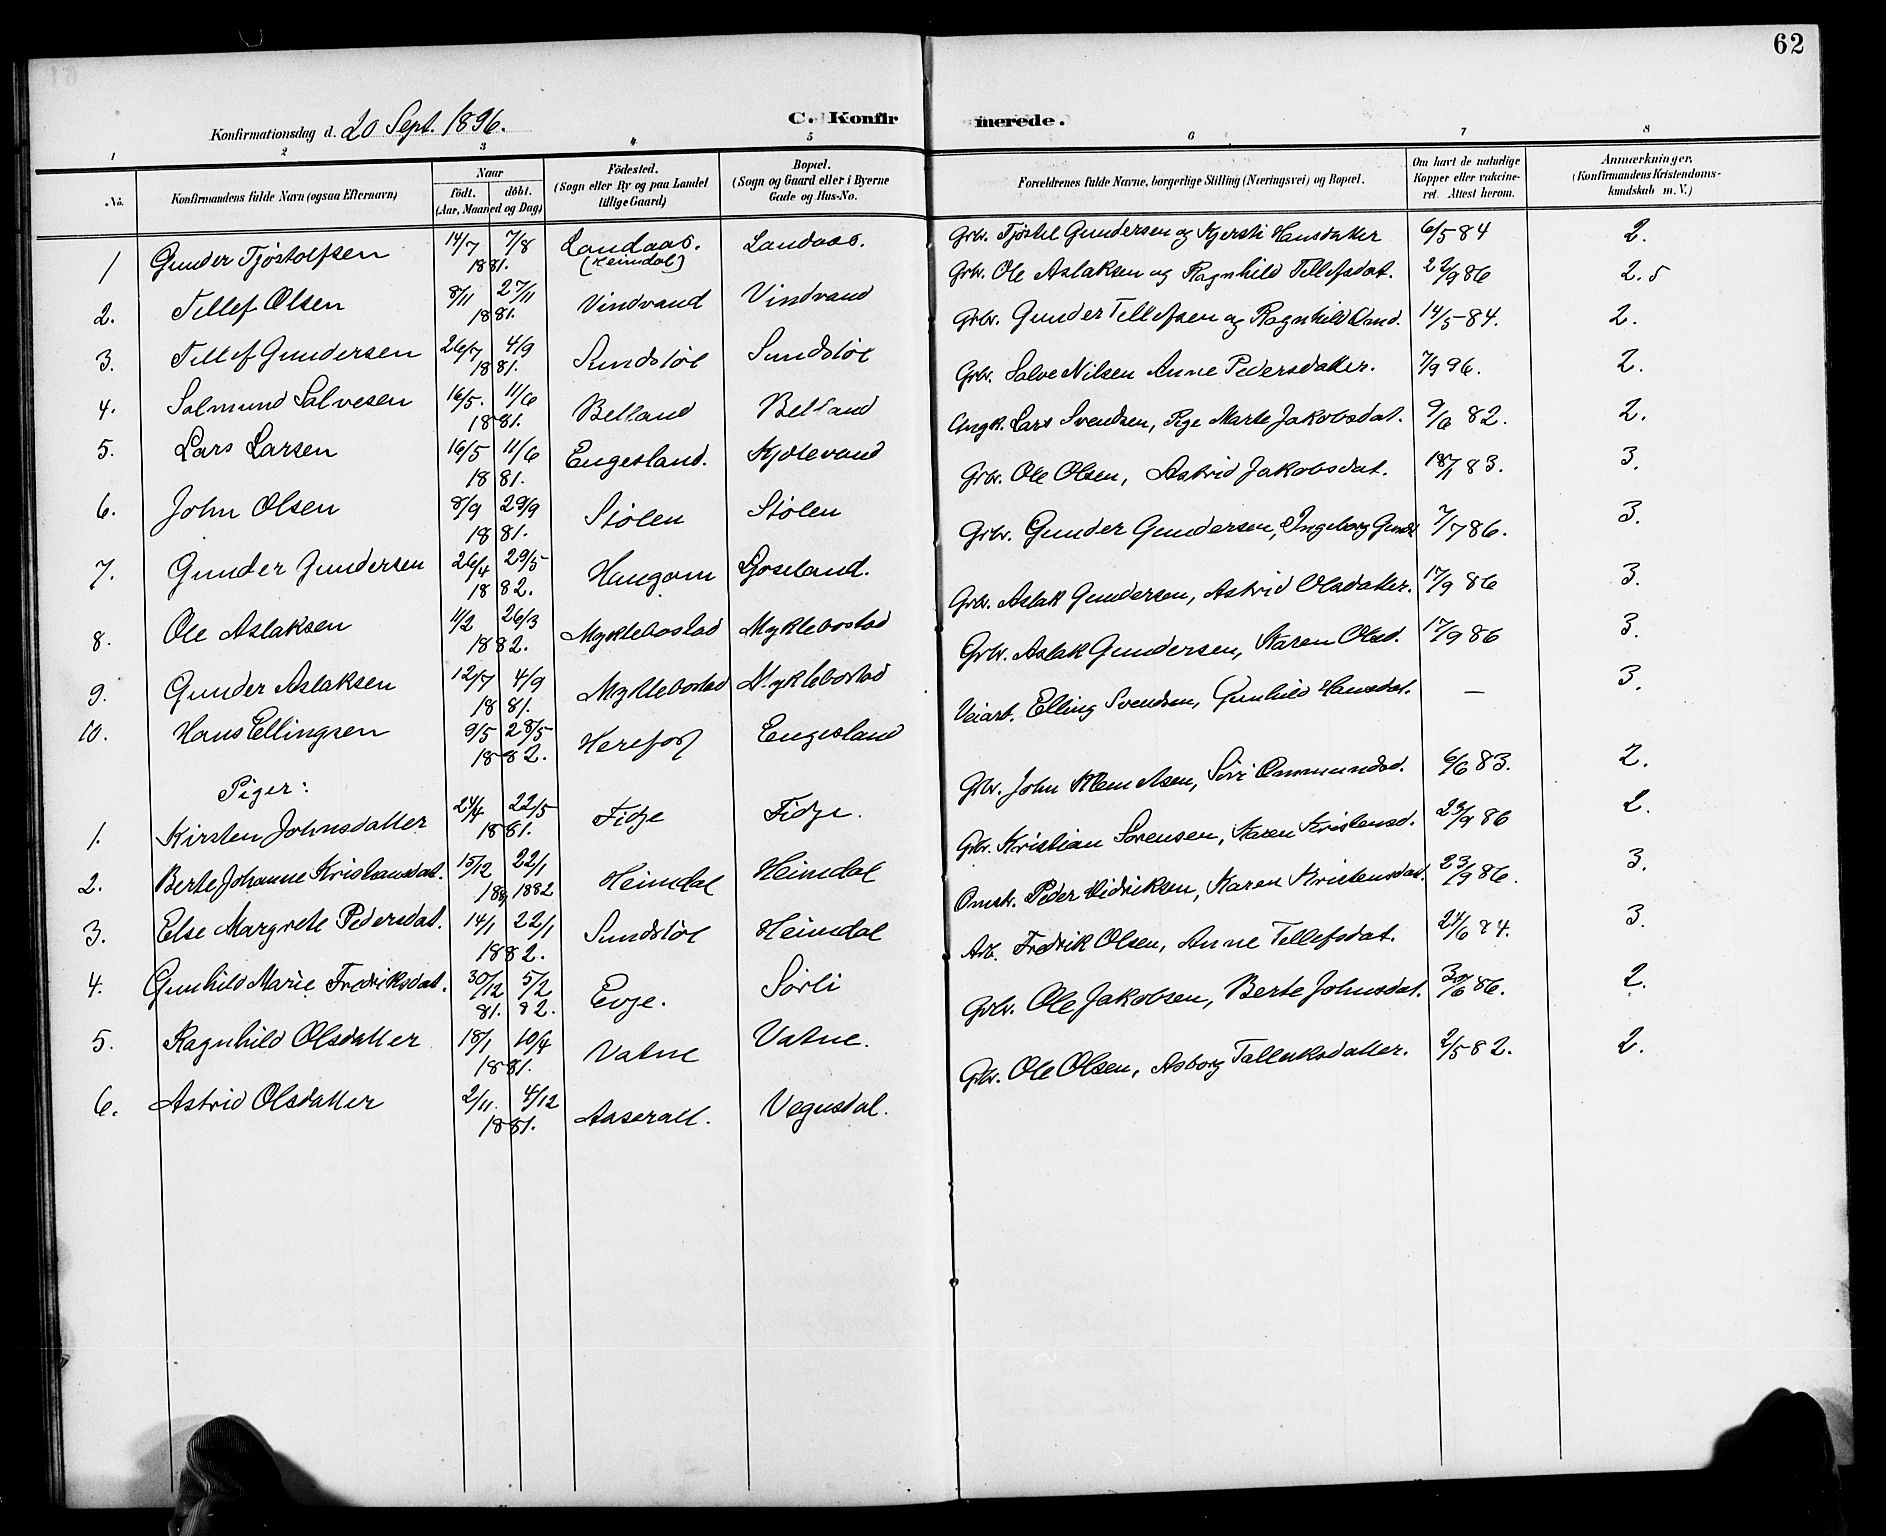 62
Konfirmationsdag d. 20 Sept. 1896.
C. Konfirmerede.
1 2 3 4 5 6 7 8
No.
Konfirmandens fulde Navn (ogsaa Efternavn)
Naar
födt. döbt.
(Aar, Maaned og Dag)
Födested.
(Sogn eller By og paa Landet
tillige Gaard)
Bopæl.
(Sogn og Gaard eller i Byerne
Gade og Hus-No.
Forældrenes fulde Navne, borgerlige Stilling (Næringsvei) og Bopæl.
Om havt de naturlige
Kopper eller vakcine-
ret. Attest herom.
Anmærkninger.
(Konfirmandens Kristendoms-
kundskab m. V.)
1 Gunder Tjöstolfsen 14/7 7/8 1881. Landaas. (Heimdal) Landaas. Grbr. Tjöstel Gundersen og Kjersti Hansdatter 6/5 84 2.
2. Tellef Olsen 8/11 27/11 1881. Vindvand Vindvand Grbr. Ole Aslaksen og Ragnhild Tellefsdat. 22/9 86 2.5
3. Tellef Gundersen 26/7 4/9 1881. Sundstöl Sundstöl Grbr. Gunder Tellefsen og Ragnhild 14/5 84. 2.
4. Salmund Salvesen 16/5. 11/6 1881. Belland Belland Grbr. Salve Nilsen Anne Pedersdatter. 7/9 96. 2.
5. Lars Larsen 16/5 11/6 1881. Engesland. Kjölevand Ungk. Lars Svendsen, Pige Marte Jakobsdat. 9/6 82. 2.
6. John Olsen 8/9 29/9 1881. Stölen Stölen Grbr. Ole Olsen, Astrid Jakobsdat. 83. 3.
7. Gunder Gundersen 26/4 29/5 1882. Haugom Ljoseland. Grbr. Gunder Gundersen, Ingeborg Gunds 7/7 86. 3.
8. Ole Aslaksen 1/2 26/3 1882. Myklebostad Myklebostad Grbr. Aslak Gundersen, Astrid Olsdatter. 17/9 86 3.
9. Gunder Aslaksen 12/7 4/9 1881. Myklebostad Myklebostad Grbr. Aslak Gundersen, Karen Olsd. 17/9 86 3.
10. Hans Ellingsen 9/5 28/5 1882. Herefos Engesland Veiarb. Elling Svendsen, Gunhild Hansdat. — 3.
Piger:
1. Kirsten Johnsdatter 24/4 22/5 1881. Fidje Fidje. Grbr. John Klemetsen, Siri Ommundsd. 6/6 83. 2.
2. Berte Johanne Kristiansdat. 15/12 22/1 1882 Heimdal Heimdal Grbr. Kristian Sörensen, Karen Kristensd. 23/9 86 2.
3. Else Margrete Pedersdat. 14/1 22/1 1882. Sundstöl Heimdal Omstr. Peder Didriksen, Karen Kristensdat. 23/9 86. 3.
4. Gunhild Marie Fredriksdat. 30/12 81. 5/2 82. Evje. Sörli Arb. Fredrik Olsen, Anne Tellefsdat. 24/6 84. 3.
5. Ragnhild Olsdatter 18/1 10/4 1881. Vatne Vatne. Grbr. Ole Jakobsen, Berte Johnsdat. 30/6 86. 2.
6. Astrid Olsdatter 2/11. 4/12 1881. Aaseral. Vegusdal. Grbr. Ole Olsen, Asborg Talleksdatter. 2/5 82. 2.